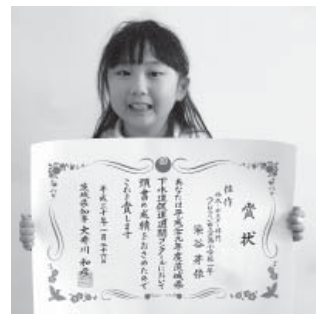 賞状
佳作
あなたは平成二十九年度茨城県
下水道促進週間コンクールにおいて
頭書の成績をおさめたので
これを賞します
平成三十年一月二十六日
茨城県知事 大井川 和彦